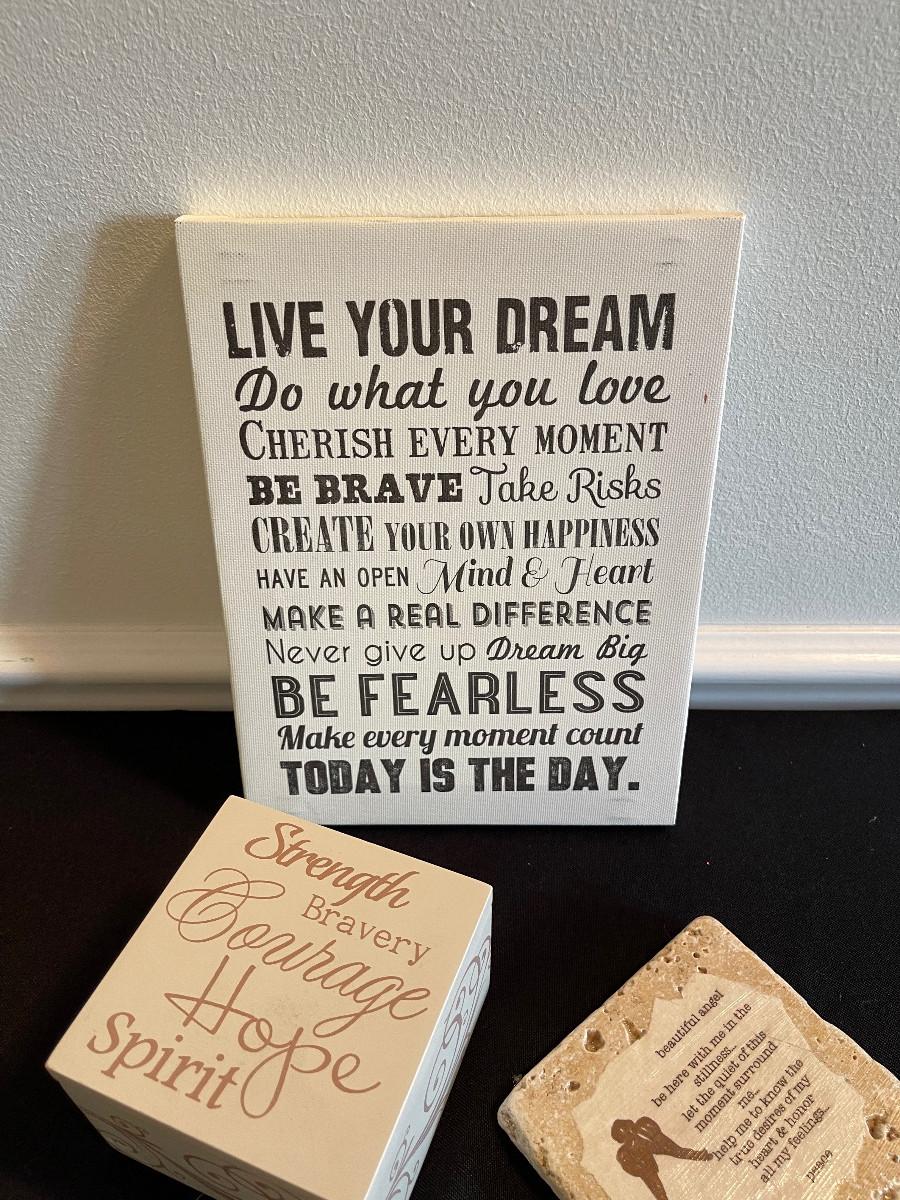 LIVE YOUR DREAM
Do what you love
CHERISH EVERY MOMENT
BE BRAVE Take Risks
CREATE YOUR OWN HAPPINESS
HAVE AN OPEN Mind & Heart
MAKE A REAL DIFFERENCE
Never give up Dream Big
BE FEARLESS
Make every moment count
TODAY IS THE DAY.
Strength
Bravery
Courage
Hope
Spirit
beautiful angel
be here with me in the
stillness...
let the quiet of this
moment surround
me...
help me to know the
true desires of my
heart & honor
all my feelings...
peace